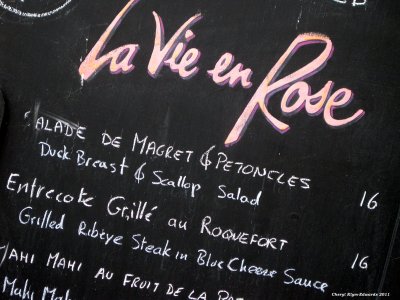 La Vie en Rose
SALADE DE MAGRET & PETONCLES
Duck Breast & Scallop Salad 16
Entrecote Grillé au ROQUEFORT
Grilled Ribeye Steak in Blue Cheese Sauce 16
MAHI MAHI AU FRUIT DE LA
Mahi
Cheryl Klyn-Edwards 2011